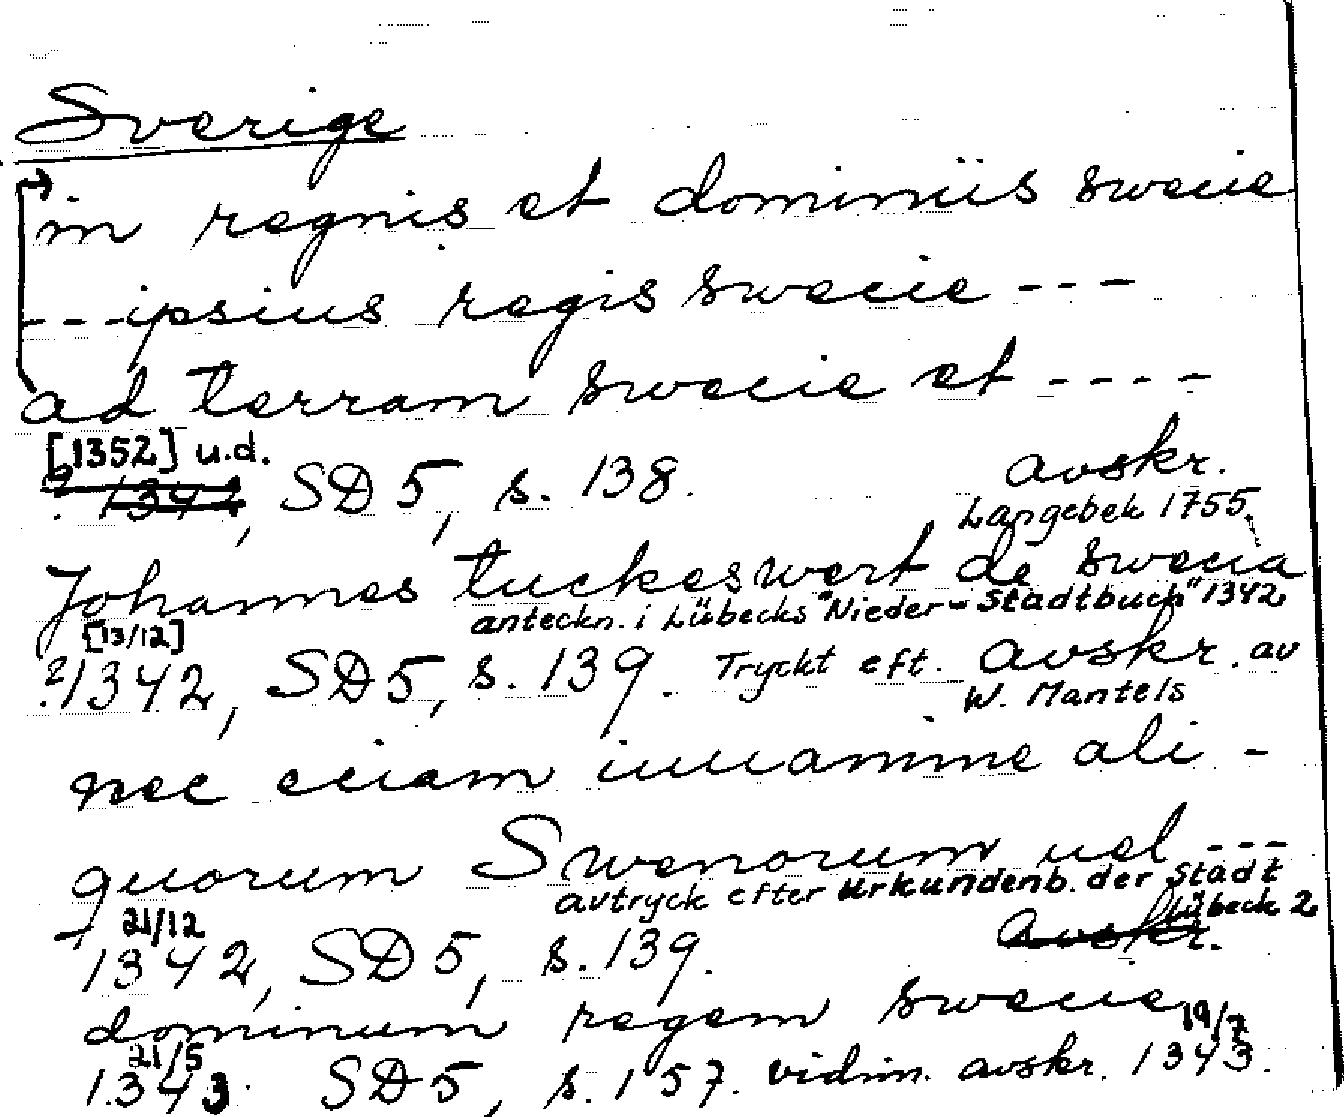 Sverige
in regnis et dominiis swecie
---ipsius regis swecie ---
ad terram swecie et ----
[1352] u.d.
? 1342, SD 5, s. 138. avskr.
Langebek 1755.
Johannes tuckeswert de swecia
anteckn. i Lübecks "Nieder-Stadtbuch" 1342
[13/12]
?1342, SD 5, s. 139. Tryckt eft. avskr. av
W. Mantels
nec eciam iuuamine ali-
quorum Swenorum uel ---
avtryck efter Urkundenb. der Stadt
Lübeck 2
21/12
1342, SD 5, s. 139. avskr.
dominum regem swecie
21/5 19/7
1343. SD 5, s. 157. vidim. avskr. 1343.